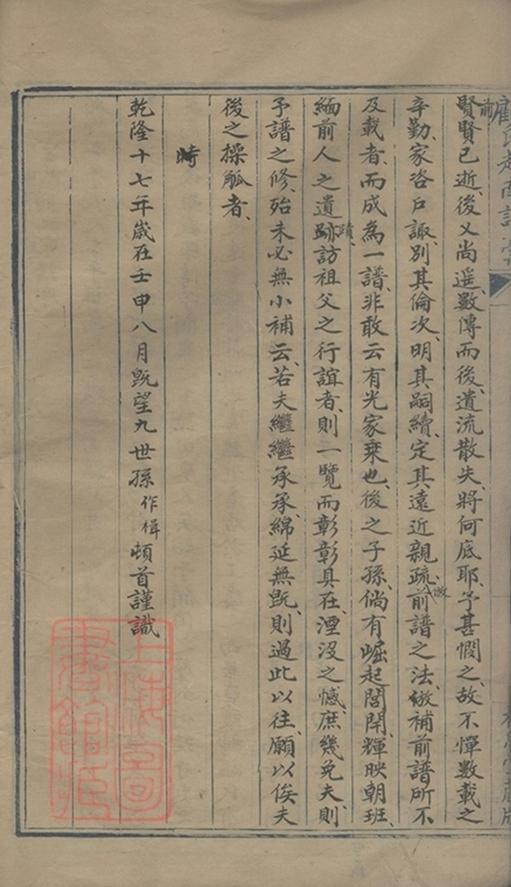 賢賢已逝、後乂尚遥、數傳而後、遺流散失、將何底耶、予甚憫之、故不憚數載之
前
辛勤、家咨戶諏、別其倫次、明其嗣續、定其遠近親疏、前譜之法、倣補前譜所不
倣
及載者、而成為一譜、非敢云有光家乗也、後之子孫、倘有崛起閭閈、輝映朝班、
緬前人之遺跡、訪祖父之行誼者、則一覽而彰彰具在、湮沒之憾、庶幾免夫、則
蹟
予譜之修、殆未必無小補云、若夫繼繼承承、綿延無旣、則過此以往、願以俟夫
後之操觚者、
時
乾隆十七年歲在壬申八月旣望九世孫作楫頓首謹識
上海圖書館藏